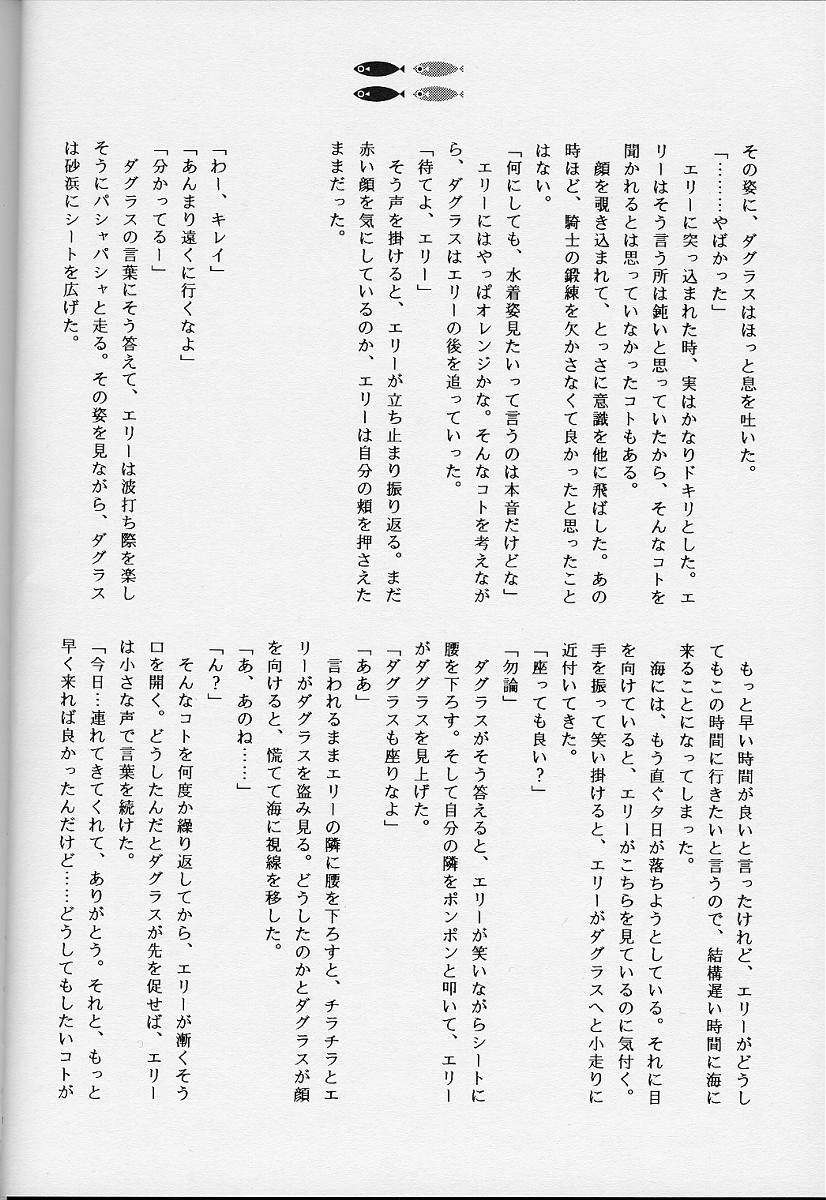 その姿に、ダグラスはほっと息を吐いた。
「………やばかった」
エリーに突っ込まれた時、実はかなりドキリとした。エ
リーはそう言う所は鈍いと思っていたから、そんなコトを
聞かれるとは思っていなかったコトもある。
顔を覗き込まれて、とっさに意識を他に飛ばした。あの
時ほど、騎士の鍛練を欠かさなくて良かったと思ったこと
はない。
「何にしても、水着姿見たいって言うのは本音だけどな」
エリーにはやっぱオレンジかな。そんなコトを考えなが
ら、ダグラスはエリーの後を追っていった。
「待てよ、エリー」
そう声を掛けると、エリーが立ち止まり振り返る。まだ
赤い顔を気にしているのか、エリーは自分の頬を押さえた
ままだった。
「わー、キレイ」
「あんまり遠くに行くなよ」
「分かってるー」
ダグラスの言葉にそう答えて、エリーは波打ち際を楽し
そうにパシャパシャと走る。その姿を見ながら、ダグラス
は砂浜にシートを広げた。
もっと早い時間が良いと言ったけれど、エリーがどうし
てもこの時間に行きたいと言うので、結構遅い時間に海に
来ることになってしまった。
海には、もう直ぐ夕日が落ちようとしている。それに目
を向けていると、エリーがこちらを見ているのに気付く。
手を振って笑い掛けると、エリーがダグラスへと小走りに
近付いてきた。
「座っても良い？」
「勿論」
ダグラスがそう答えると、エリーが笑いながらシートに
腰を下ろす。そして自分の隣をポンポンと叩いて、エリー
がダグラスを見上げた。
「ダグラスも座りなよ」
「ああ」
言われるままエリーの隣に腰を下ろすと、チラチラとエ
リーがダグラスを盗み見る。どうしたのかとダグラスが顔
を向けると、慌てて海に視線を移した。
「あ、あのね……」
「ん？」
そんなコトを何度か繰り返してから、エリーが漸くそう
口を開く。どうしたんだとダグラスが先を促せば、エリー
は小さな声で言葉を続けた。
「今日…連れてきてくれて、ありがとう。それと、もっと
早く来れば良かったんだけど……どうしてもしたいコトが